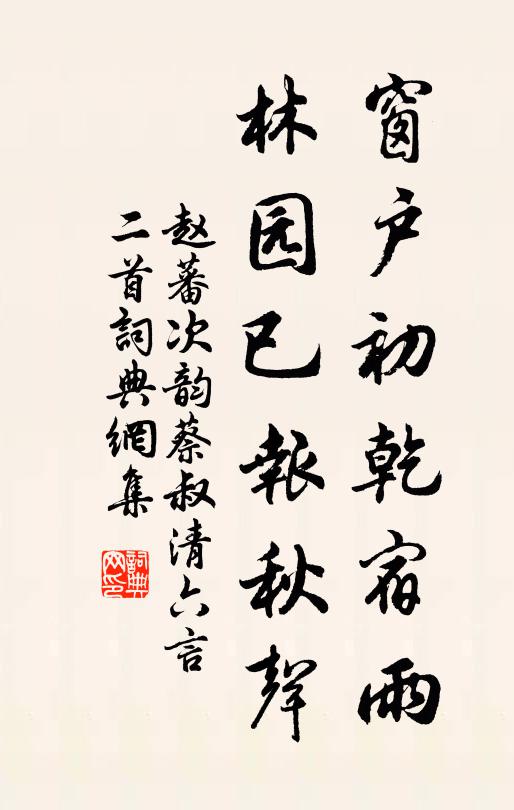 窗户初乾宿雨
林园已報秋聲
赵蕃次韵蔡叔清六言
二首詞典網集
詞典網印